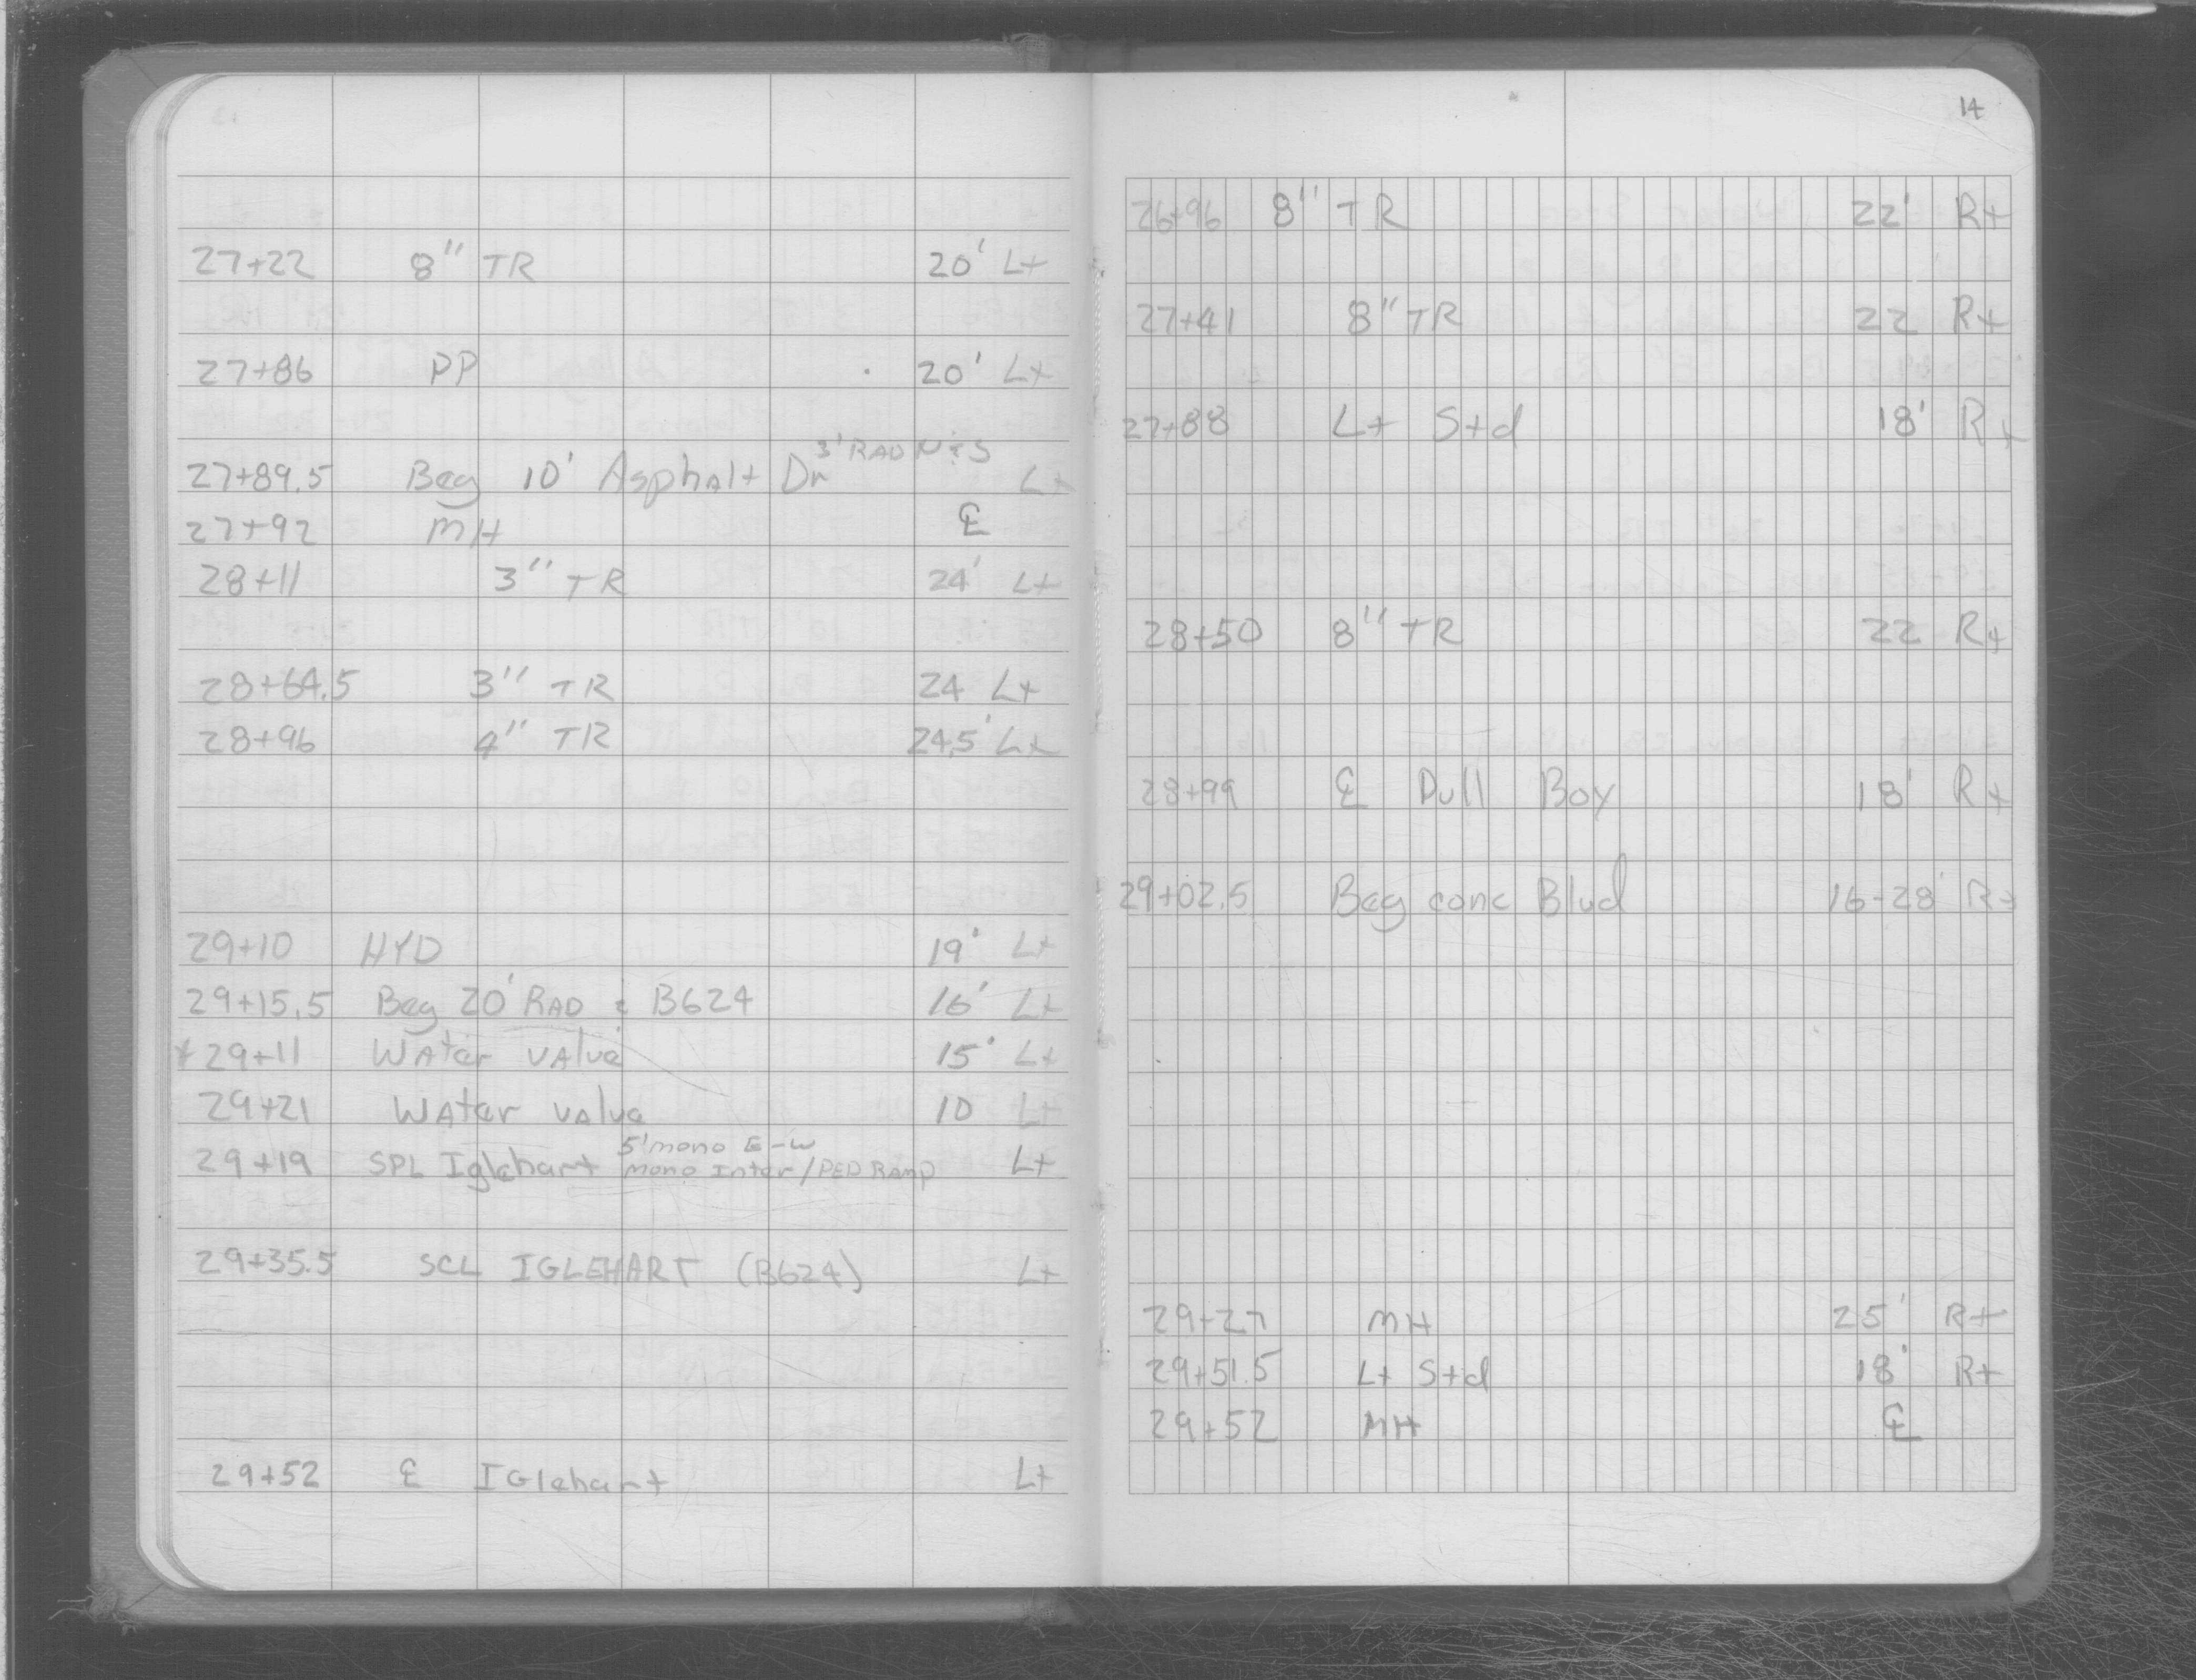 27+22 8" TR 20' Lt
27+86 PP 20' Lt
3' RAD N & S
27+89.5 Beg 10' Asphalt Dr Lt
27+92 MH ℄
28+11 3" TR 24' Lt
28+64.5 3" TR 24 Lt
28+96 4" TR 24.5' Lt
29+10 HYD 19' Lt
29+15.5 Beg 20' RAD & B624 16' Lt
* 29+11 Water valve 15' Lt
29+21 Water valve 10 Lt
5' mono E-W
29+19 SPL Iglehart mono Inter/PED RAMP Lt
29+35.5 SCL IGLEHART (B624) Lt
29+52 ℄ IGlehart Lt
14
26+96 8" TR 22' Rt
27+41 8" TR 22 Rt
27+88 Lt Std 18' Rt
28+50 8" TR 22 Rt
28+99 ℄ Pull Box 18' Rt
29+02.5 Beg conc Blvd 16-28' Rt
29+27 MH 25' Rt
29+51.5 Lt Std 18' Rt
29+52 MH ℄